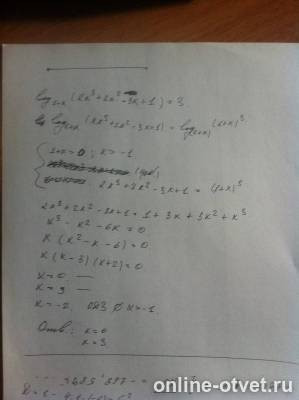 log₁₊ₓ (2x³+2x²-3x+1) = 3.
log₁₊ₓ (2x³+2x²-3x+1) = log₍₁₊ₓ₎ (1+x)³
1+x>0; x>-1
2x³+2x²-3x+1 = (1+x)³
2x³+2x²-3x+1 = 1+3x+3x²+x³
x³-x²-6x=0
x(x²-x-6)=0
x(x-3)(x+2)=0
x=0
x=3
x=-2 ОДЗ x -1.
Ответ: x=0
x=3.
online-otvet.ru